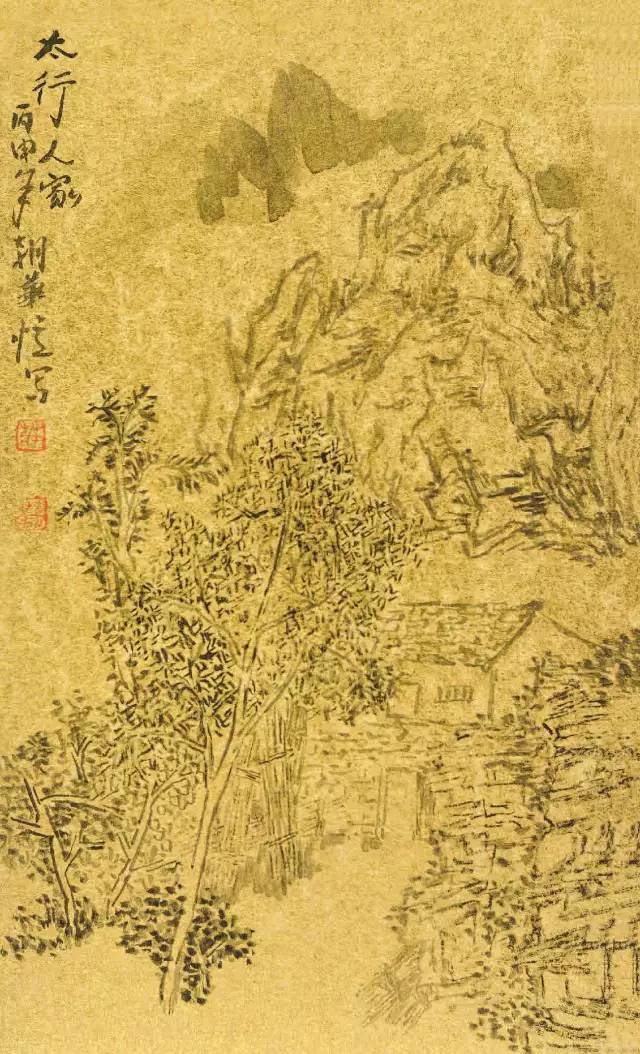 太行人家
丙申年朝華憶写